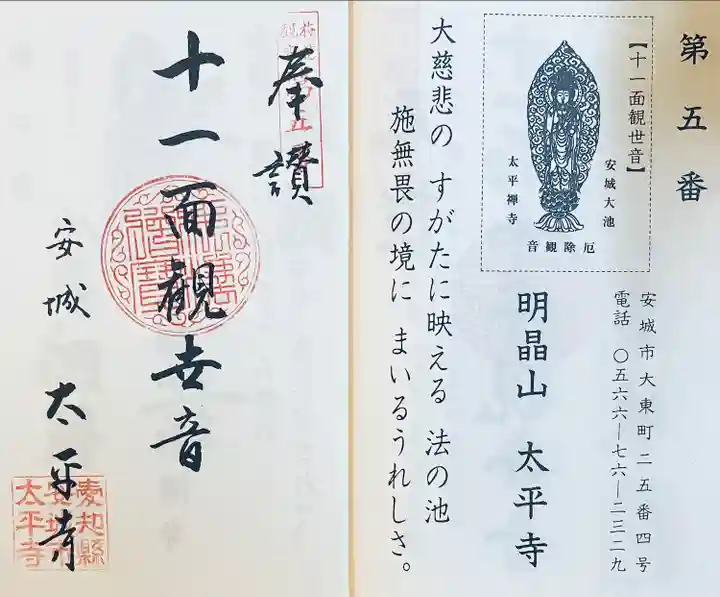 第五番
安城市大東町二五番四号
電話 〇五六六―七六―二三二九
【十一面観世音】
安城大池
太平禅寺
厄除観音
明晶山 太平寺
大慈悲の すがたに映える 法の池
施無畏の境に まいるうれしさ。
奉讃
十一面観世音
安城 太平寺
愛知縣
安城市
太平寺